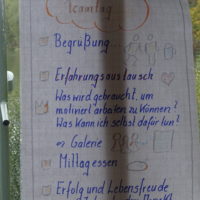 Teamtag
Begrüßung ...
Erfahrungsaustausch
Was wird gebraucht, um
motiviert arbeiten zu können?
Was kann ich selbst dafür tun?
Galerie
Mittagessen
Erfolg und Lebensfreude